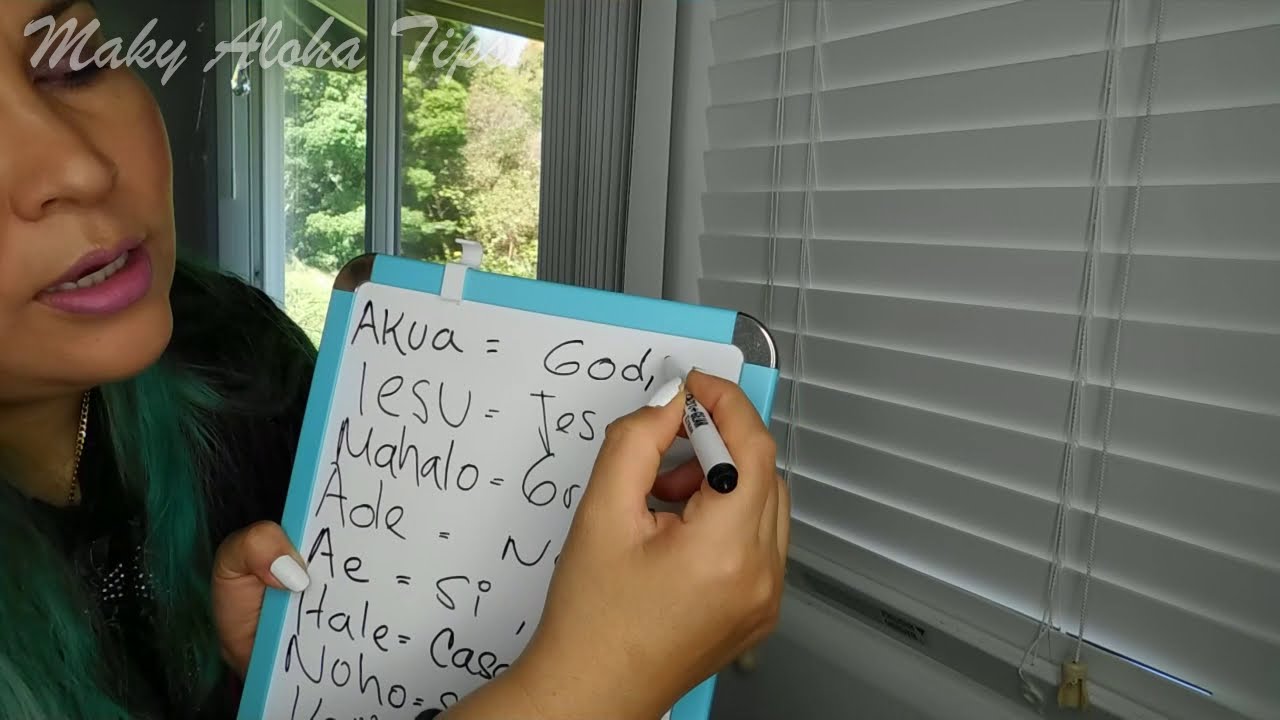 Maky Aloha Tips
AKua = God,
Iesu = Jes
Mahalo = Gr
Aole =
Ae = si
Hale = Casa
Noho =